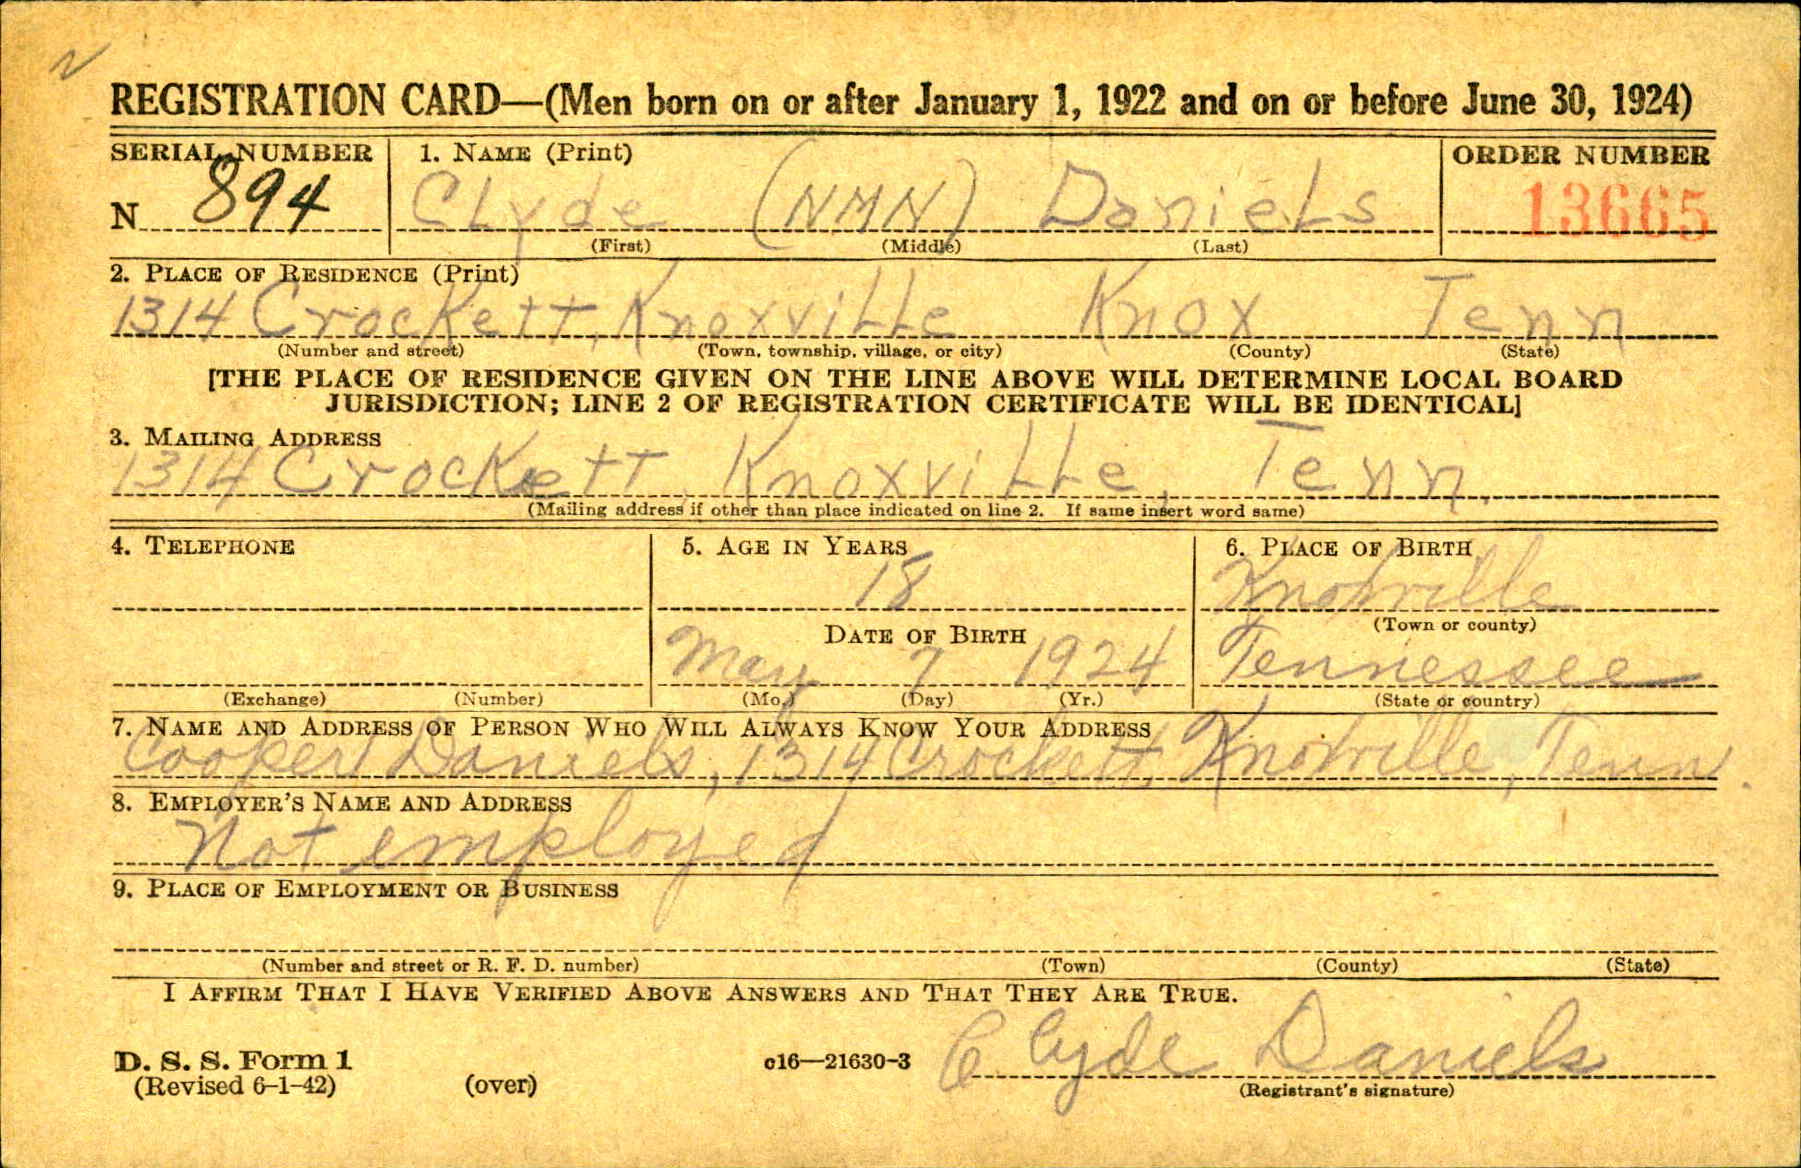 REGISTRATION CARD—(Men born on or after January 1, 1922 and on or before June 30, 1924)
SERIAL NUMBER 1. NAME (Print) ORDER NUMBER
N 894 Clyde (NMN) Daniels 13665
(First) (Middle) (Last)
2. PLACE OF RESIDENCE (Print)
1314 Crockett, Knoxville Knox Tenn
(Number and street) (Town, township, village, or city) (County) (State)
[THE PLACE OF RESIDENCE GIVEN ON THE LINE ABOVE WILL DETERMINE LOCAL BOARD
JURISDICTION; LINE 2 OF REGISTRATION CERTIFICATE WILL BE IDENTICAL]
3. MAILING ADDRESS
1314 Crockett, Knoxville, Tenn.
(Mailing address if other than place indicated on line 2. If same insert word same)
4. TELEPHONE 5. AGE IN YEARS 6. PLACE OF BIRTH
18 Knoxville
DATE OF BIRTH (Town or county)
May 7 1924 Tennessee
(Exchange) (Number) (Mo.) (Day) (Yr.) (State or country)
7. NAME AND ADDRESS OF PERSON WHO WILL ALWAYS KNOW YOUR ADDRESS
Cooper Daniels, 1314 Crockett, Knoxville, Tenn.
8. EMPLOYER'S NAME AND ADDRESS
Not employed
9. PLACE OF EMPLOYMENT OR BUSINESS
(Number and street or R. F. D. number) (Town) (County) (State)
I AFFIRM THAT I HAVE VERIFIED ABOVE ANSWERS AND THAT THEY ARE TRUE.
D. S. S. Form 1 c16—21630-3 Clyde Daniels
(Revised 6-1-42) (over) (Registrant's signature)